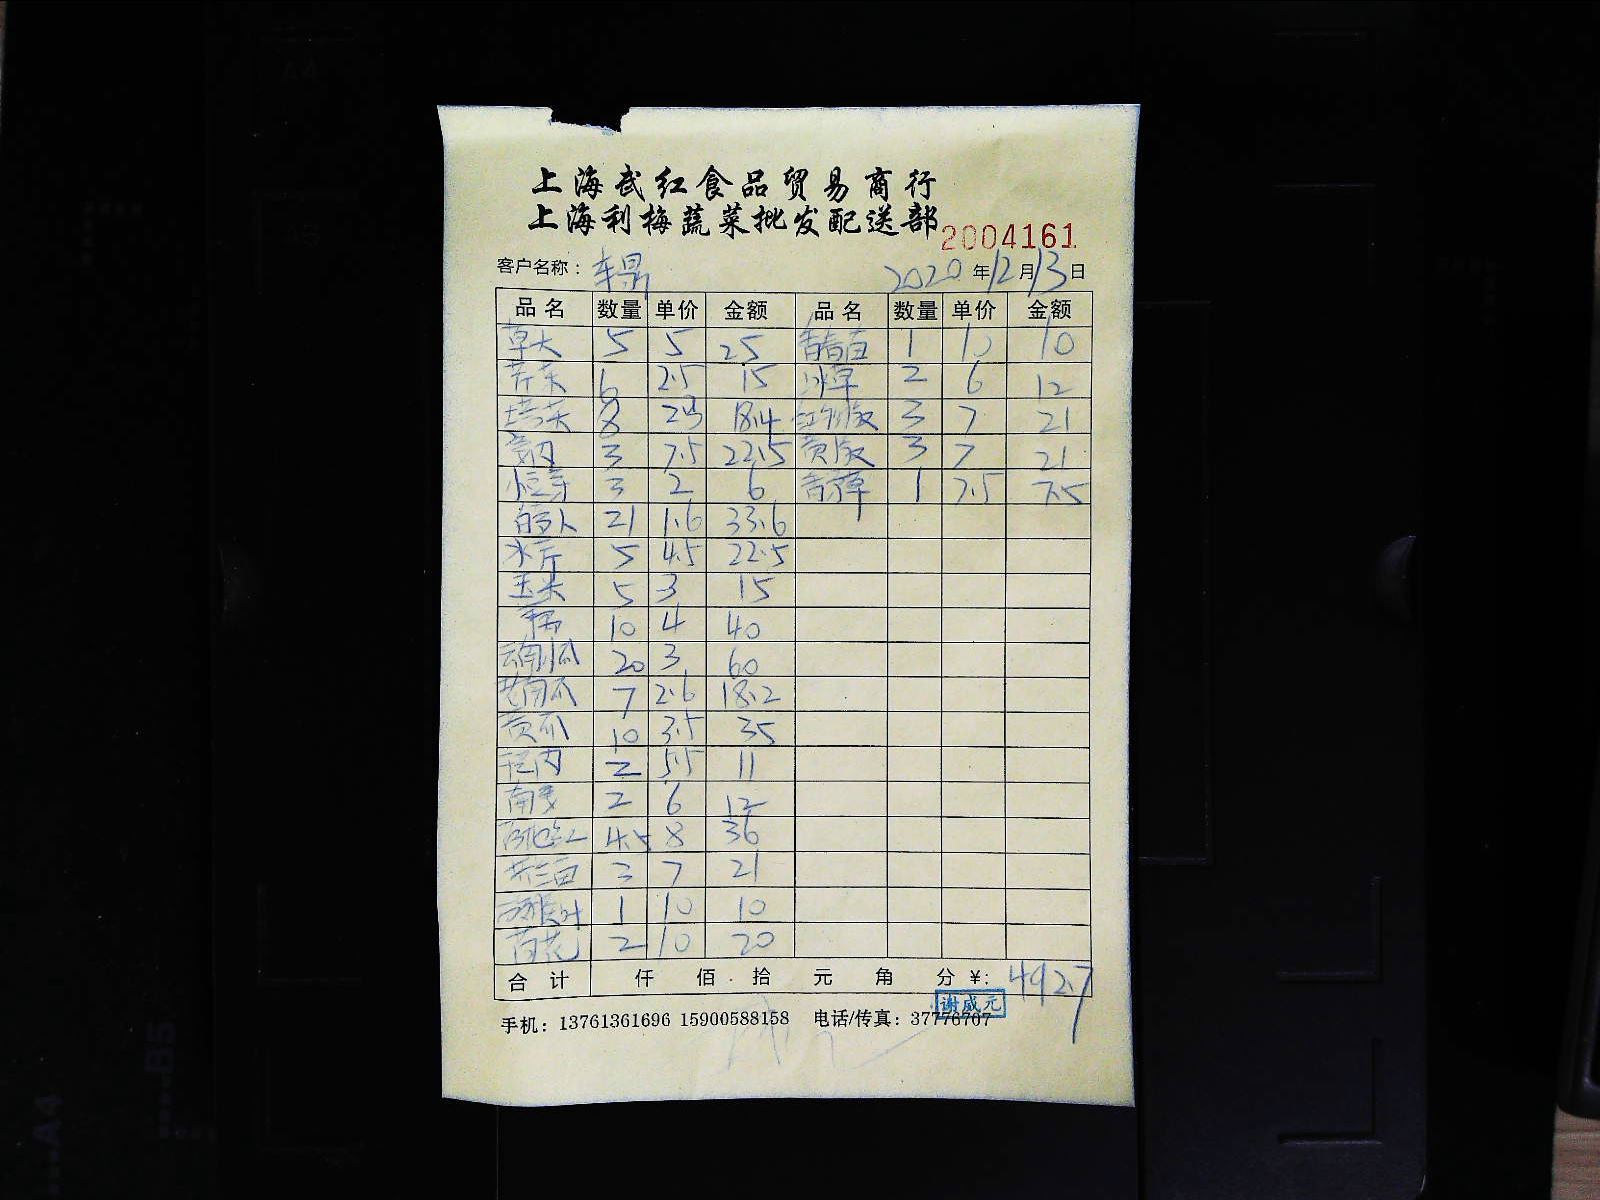 上海武红食品贸易商行
上海利梅蔬菜批发配送部
2004161
客户名称：车鼎 2020年12月13日
品名 数量 单价 金额 品名 数量 单价 金额
草头 5 5 25 香春苗 1 10 10
芹菜 6 2.5 15 冰草 2 6 12
塔菜 8 2.3 18.4 3 7 21
3 7.5 22.5 黄椒 3 7 21
小豆芽 3 2 6 香茅草 1 7.5 7.5
21 1.6 33.6
水芹 5 4.5 22.5
玉米 5 3 15
藕 10 4 40
云南小瓜 20 3 60
老南瓜 7 2.6 18.2
黄瓜 10 3.5 35
2 5.5 11
南姜 2 6 12
4.5 8 36
芥兰苗 3 7 21
1 10 10
2 10 20
合计 仟 佰 拾 元 角 分 ¥: 492.7
谢威元
手机：13761361696 15900588158 电话/传真：37776707